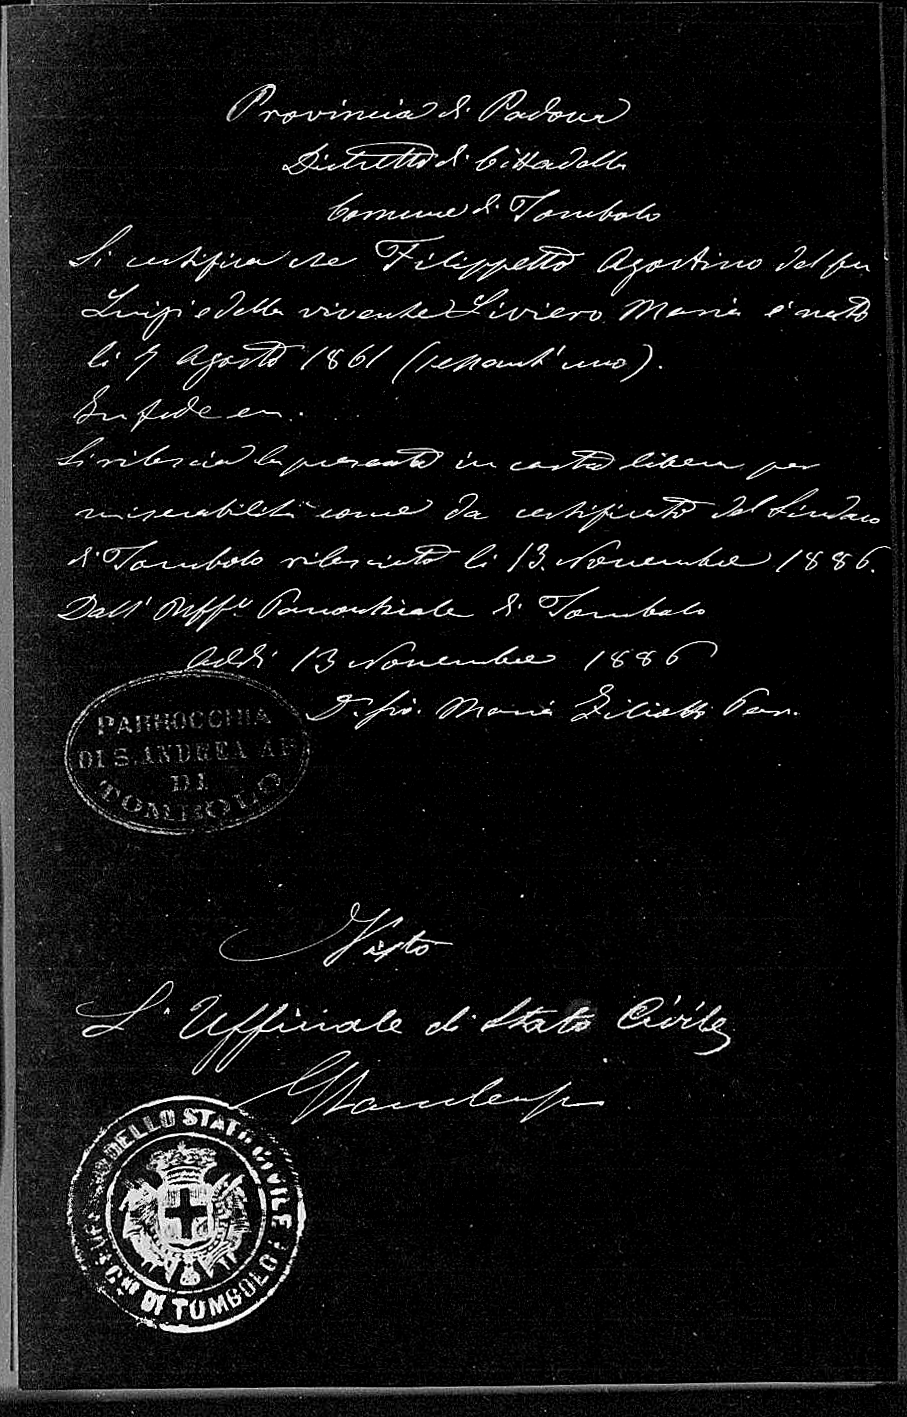 Provincia di Padova
Distretto di Cittadella
Comune di Tombolo
Si certifica che Filippetto Agostino del fu
Luigi e della vivente Liviero Maria è nato
li 7 Agosto 1861 (sessant'uno).
In fede
Si rilascia la presente in carta libera per
miserabilità come da certificato del Sindaco
di Tombolo rilasciato li 13. Novembre 1886.
Dall' Uff.º Parrocchiale di Tombolo
Addi 13 Novembre 1886
D. Gio. Maria Ziliotto Par.
PARROCCHIA
DI S. ANDREA AP.
DI
TOMBOLO
Visto
L'Ufficiale di Stato Civile
DELLO STATO CIVILE
DI TOMBOLO